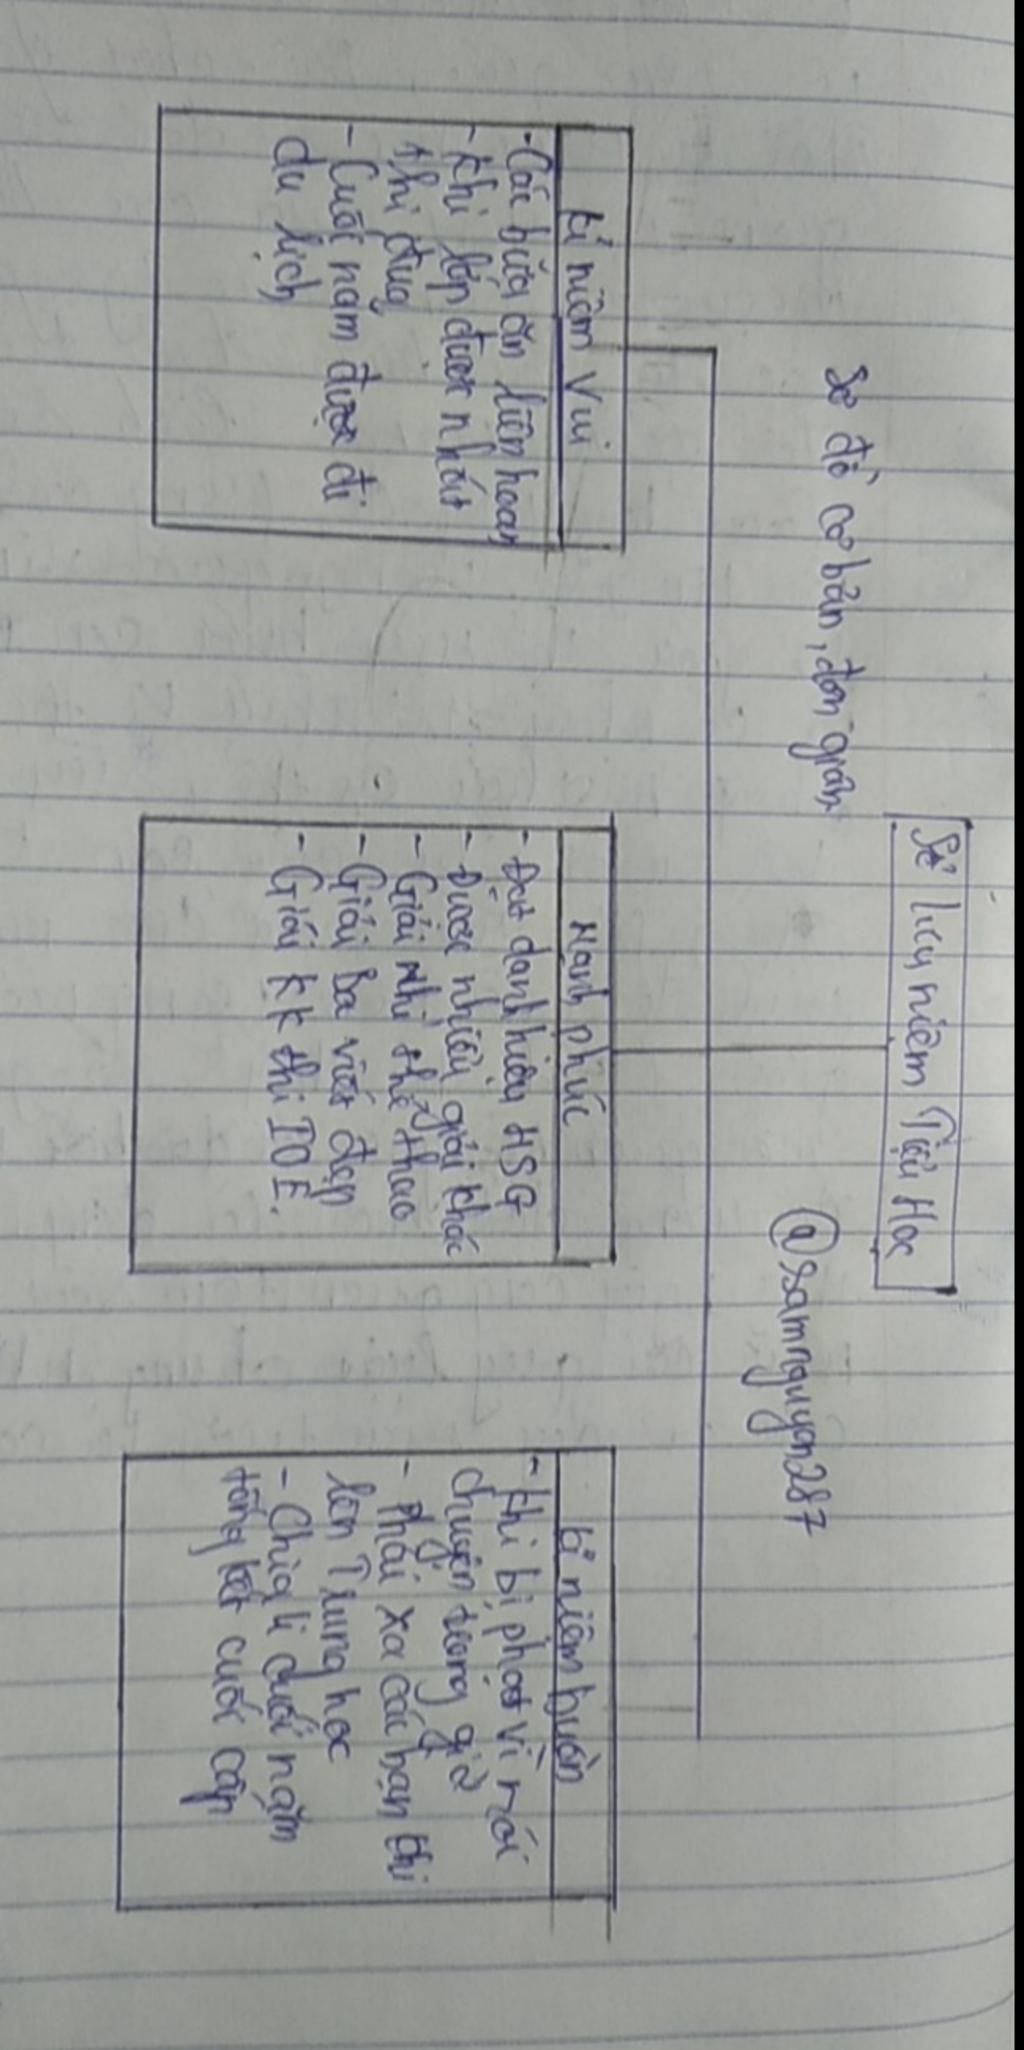 Sổ lưu niệm Tiểu Học
Sơ đồ cơ bản, đơn giản
@samnguyen287
kỉ niệm vui
- Các bữa ăn liên hoan
- khi lớp được nhất
thi đua
- Cuối năm được đi
du lịch
Hạnh phúc
- Đạt danh hiệu HSG
- Được nhiều giải khác
- Giải Nhì thể thao
- Giải Ba viết đẹp
- Giải KK thi IOE.
kỉ niệm buồn
- khi bị phạt vì nói
chuyện trong giờ
- Phải xa các bạn khi
lên Trung học
- Chia li cuối năm
tổng kết cuối cấp